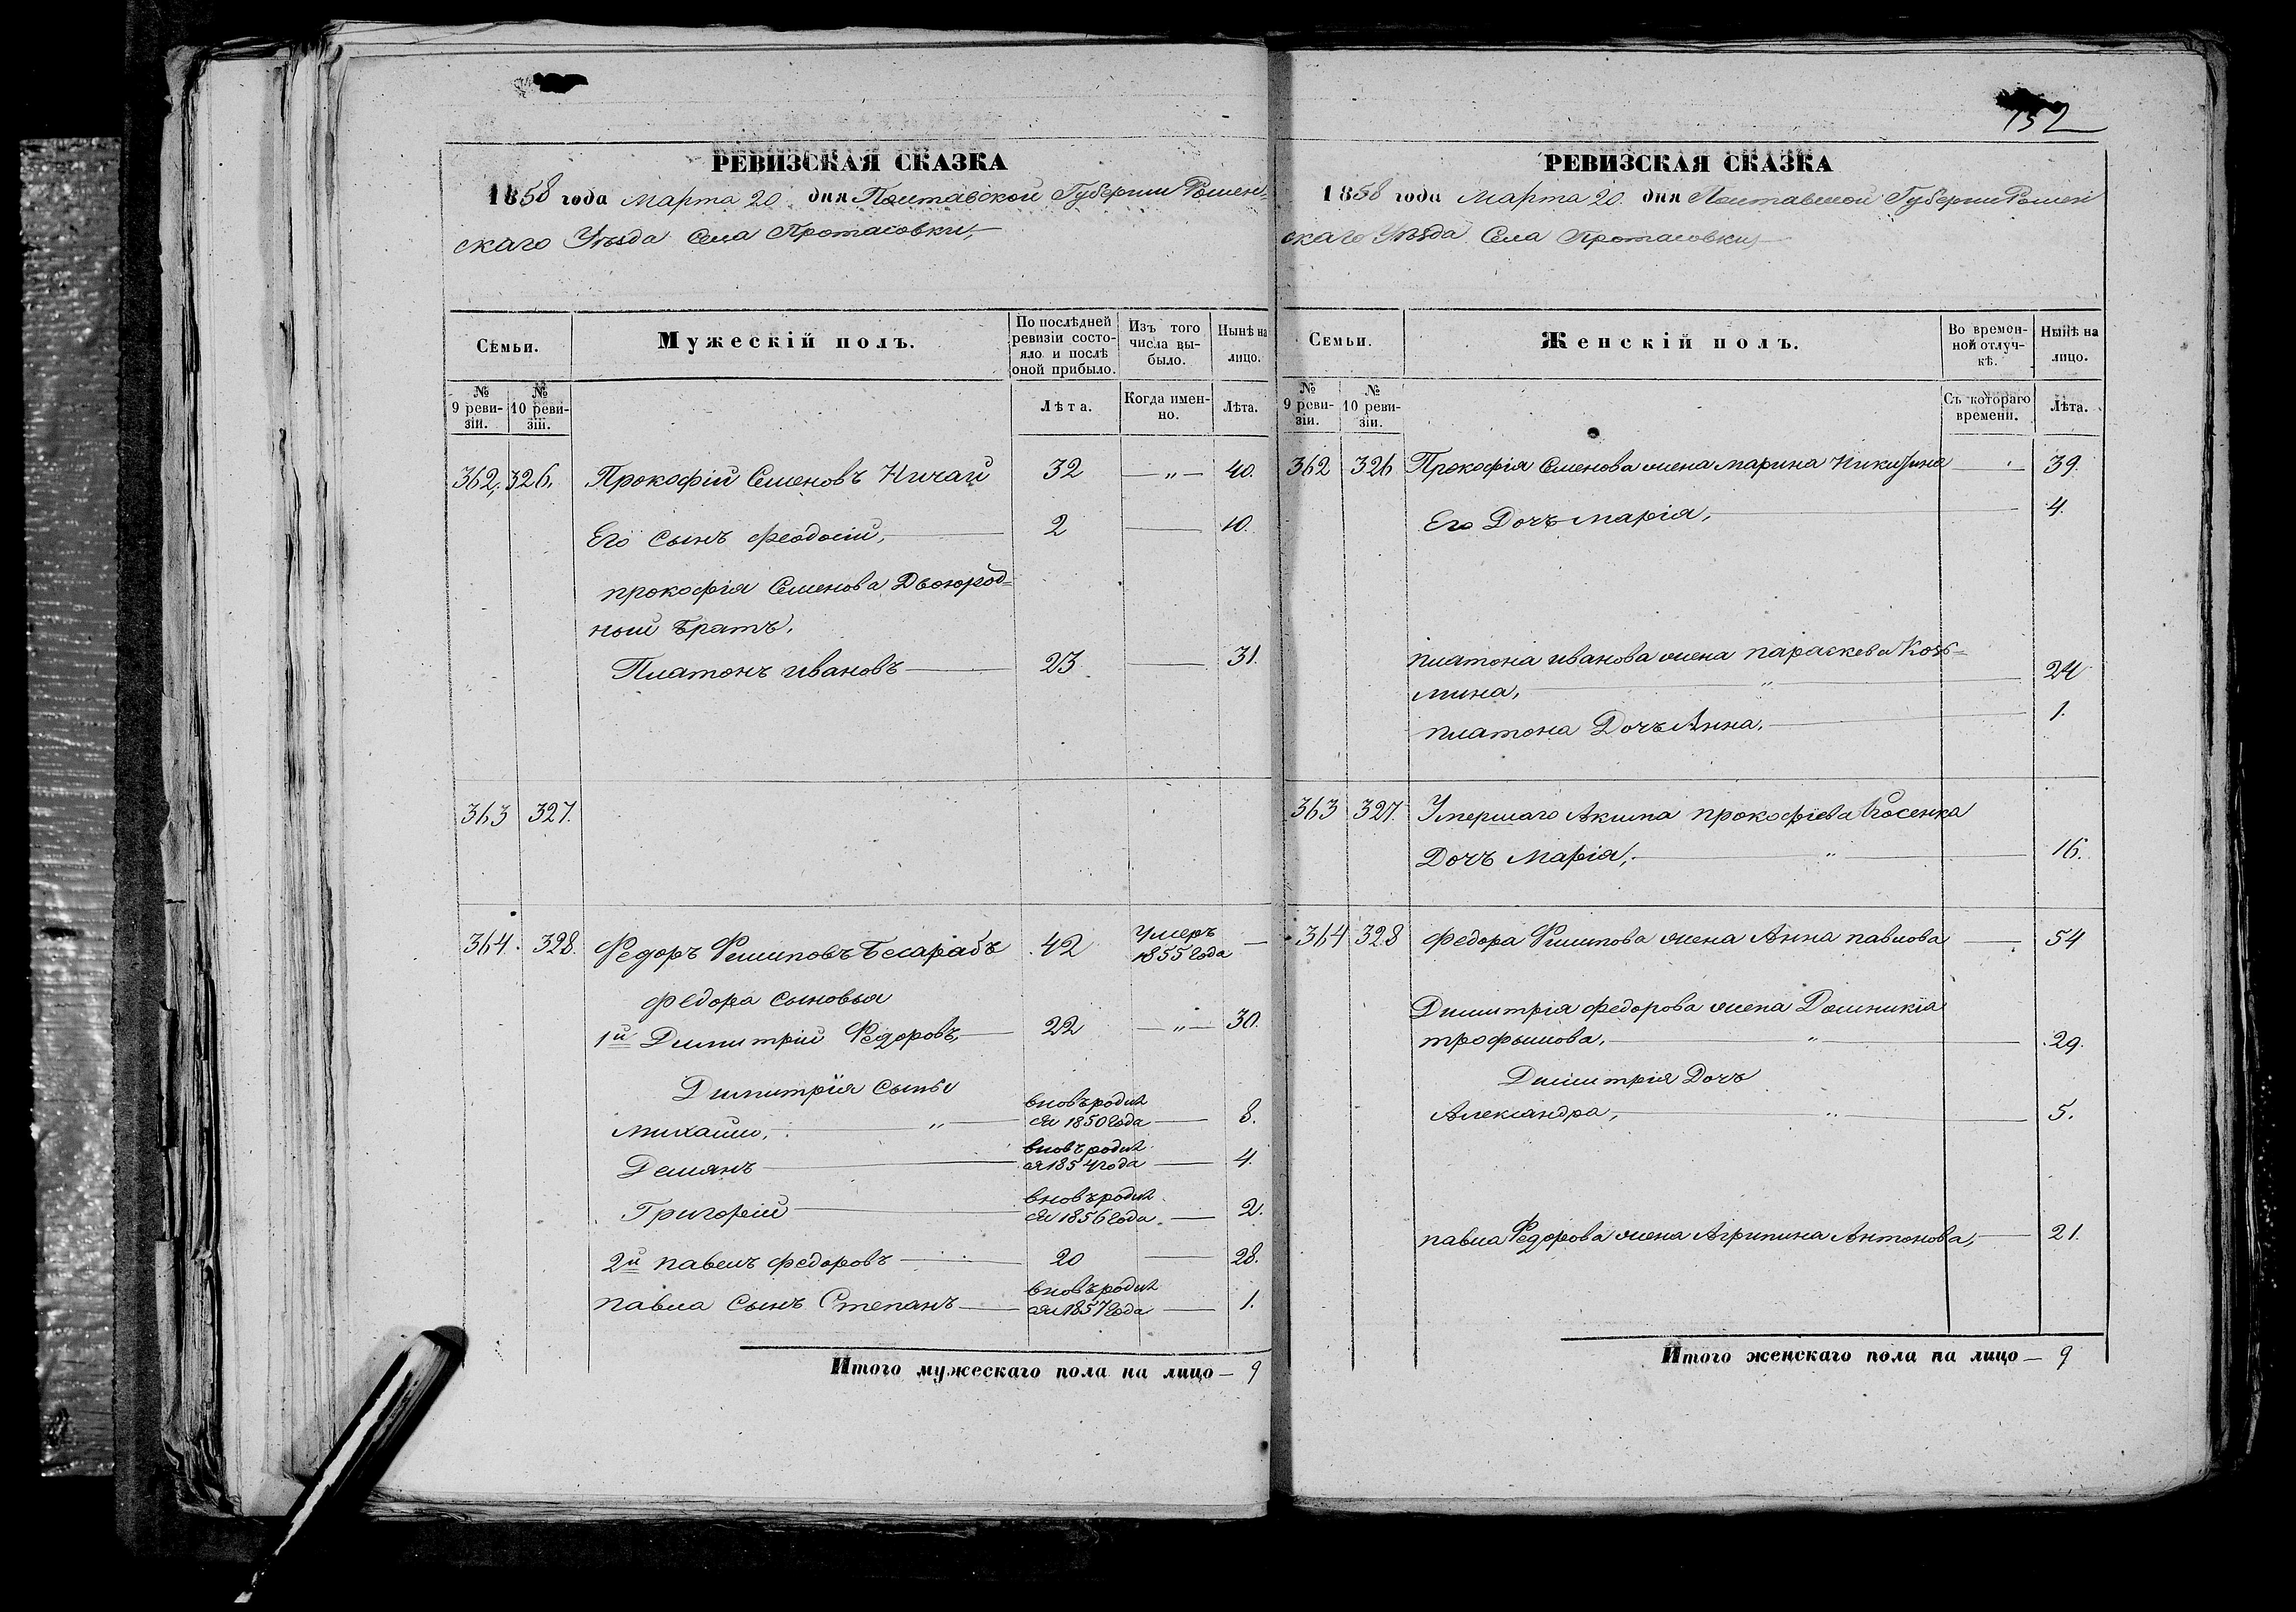 РЕВИЗСКАЯ СКАЗКА
1858 года Марта 20 дня Полтавской Губернии Ромен-
скаго Уѣзда Села Протасовки,
Семьи.
Мужескій полъ.
По послѣдней ревизіи состояло и послѣ оной прибыло.
Изъ того числа выбыло.
Нынѣ на лицо.
№ 9 ревизіи.
№ 10 ревизіи.
Лѣта.
Когда именно.
Лѣта.
362. 326. Прокофій Семеновъ Ничай 32 —„— 40.
Его сынъ Феодосій, 2 — 10.
прокофія Семенова Двоюрод=
ный Братъ,
Платонъ ивановъ — 23 — 31.
363 327.
364. 328. Федоръ Филиповъ Бесарабъ 42 Умеръ 1855 года —
Федора сыновья
1й Димитрій Федоровъ, 22 —„— 30.
Димитрія сыны
михаилъ, „ вновь родил ся 1850 года — 8.
Демянъ — вновь родил ся 1854 года — 4.
Григорій — вновь родил ся 1856 года — 2.
2й павелъ федоровъ — 20 — 28.
павла Сынъ Степанъ — вновь родил ся 1857 года — 1.
Итого мужескаго пола на лицо — 9
152
РЕВИЗСКАЯ СКАЗКА
1858 года Марта 20 дня Полтавской Губернии Ромен
скаго Уѣзда Села Протасовки,
Семьи.
Женскій полъ.
Во временной отлучкѣ.
Нынѣ на лицо.
№ 9 ревизіи.
№ 10 ревизіи.
Съ котораго времени.
Лѣта.
362 326 Прокофія Семенова жена марина Никитина — 39.
Его Дочь марія, — 4.
платона иванова жена параскева Козь=
мина, — „ — 24
платона Дочь Анна, — 1.
363 327. Умершаго Акима прокофіева Косенка
Дочь Марія, — „ — 16.
364 328 Федора Филипова жена Анна павлова — 54
Димитрія федорова жена Домникія
трофимова, — „ — 29.
Димитрія Дочь
Александра, — „ — 5.
павла Федорова жена Агрипина Антонова, — 21.
Итого женскаго пола на лицо — 9